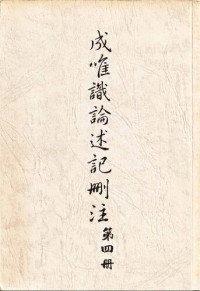 成唯識論述記刪注
第四册